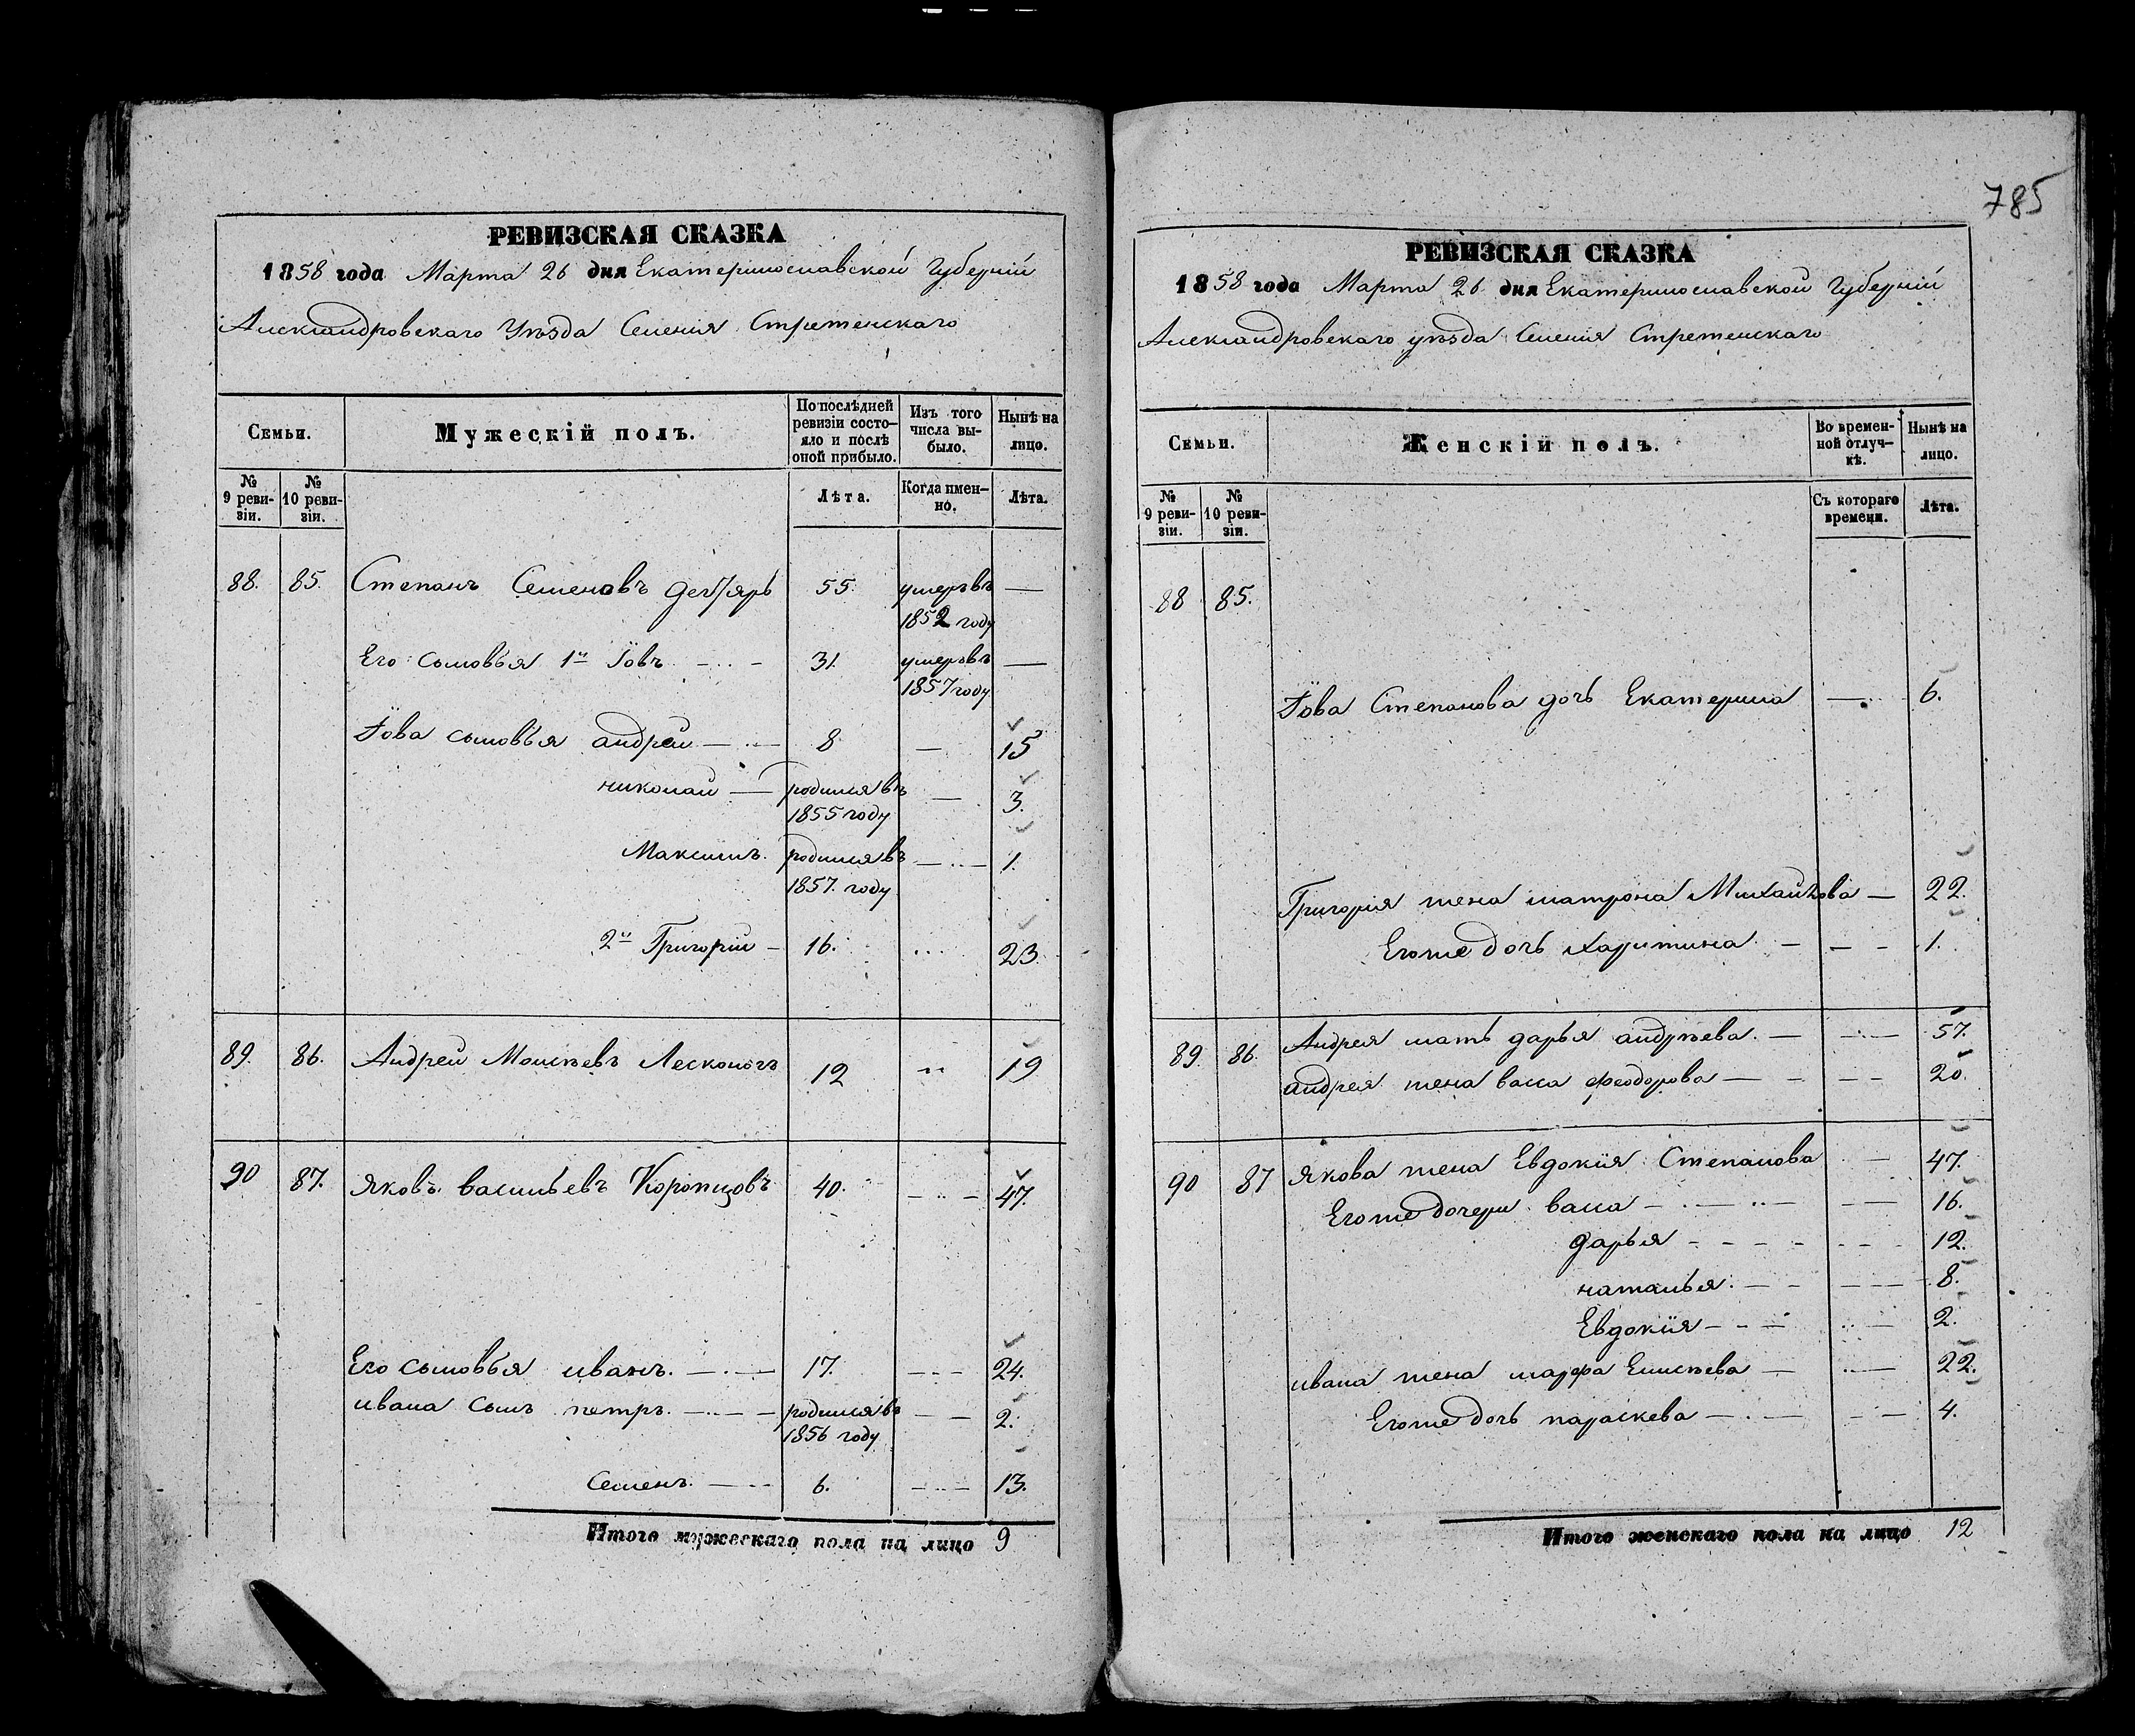 РЕВИЗСКАЯ СКАЗКА
1858 года Марта 26 дня Екатеринославской Губерніи
Александровскаго Уѣзда Селенія Стретенскаго
Семьи.
Мужескій полъ.
По послѣдней ревизіи состояло и послѣ оной прибыло.
Изъ того числа выбыло.
Нынѣ на лицо.
№ 9 ревизіи.
№ 10 ревизіи.
Лѣта.
Когда именно.
Лѣта.
88. 85. Степанъ Семеновъ 55 умеръ въ —
1852 году
Его сыновья 1й Іовъ — 31 умеръ въ —
1857 году
Іова сыновья андрей — 8 — 15
николай — родился въ — 3.
1855 году
Максимъ. родился въ — 1.
1857. году
2й Григорій — 16. 23.
89. 86. Андрей Моисѣевъ 12 " 19
90 87. Яковъ васильевъ 40. — 47.
Его сыновья иванъ. — 17. — 24.
ивана сынъ петръ. — родился въ — 2.
1856 году
Семенъ. — 6. — 13.
Итого мужескаго пола на лицо 9
785
РЕВИЗСКАЯ СКАЗКА
1858 года Марта 26 дня Екатеринославской Губерніи
Александровскаго уѣзда Селенія Стретенскаго
Семьи.
Женскій полъ.
Во временной отлучкѣ.
Нынѣ на лицо.
№ 9 ревизіи.
№ 10 ревизіи.
Съ котораго времени.
Лѣта.
88 85.
Іова Степанова дочь Екатерина — 6.
Григорія жена матрона Михайлова — 22.
Егоже дочь харитина. — 1.
89. 86. Андрея мать дарья андрѣева. — 57.
андрея жена васса феодорова — 20.
90 87 Якова жена Евдокія Степанова — 47.
Егоже дочери васса — 16.
дарья — 12.
наталья. — 8.
Евдокія — 2.
ивана жена марфа Елисѣева — 22.
Егоже дочь параскева — 4.
Итого женскаго пола на лицо 12